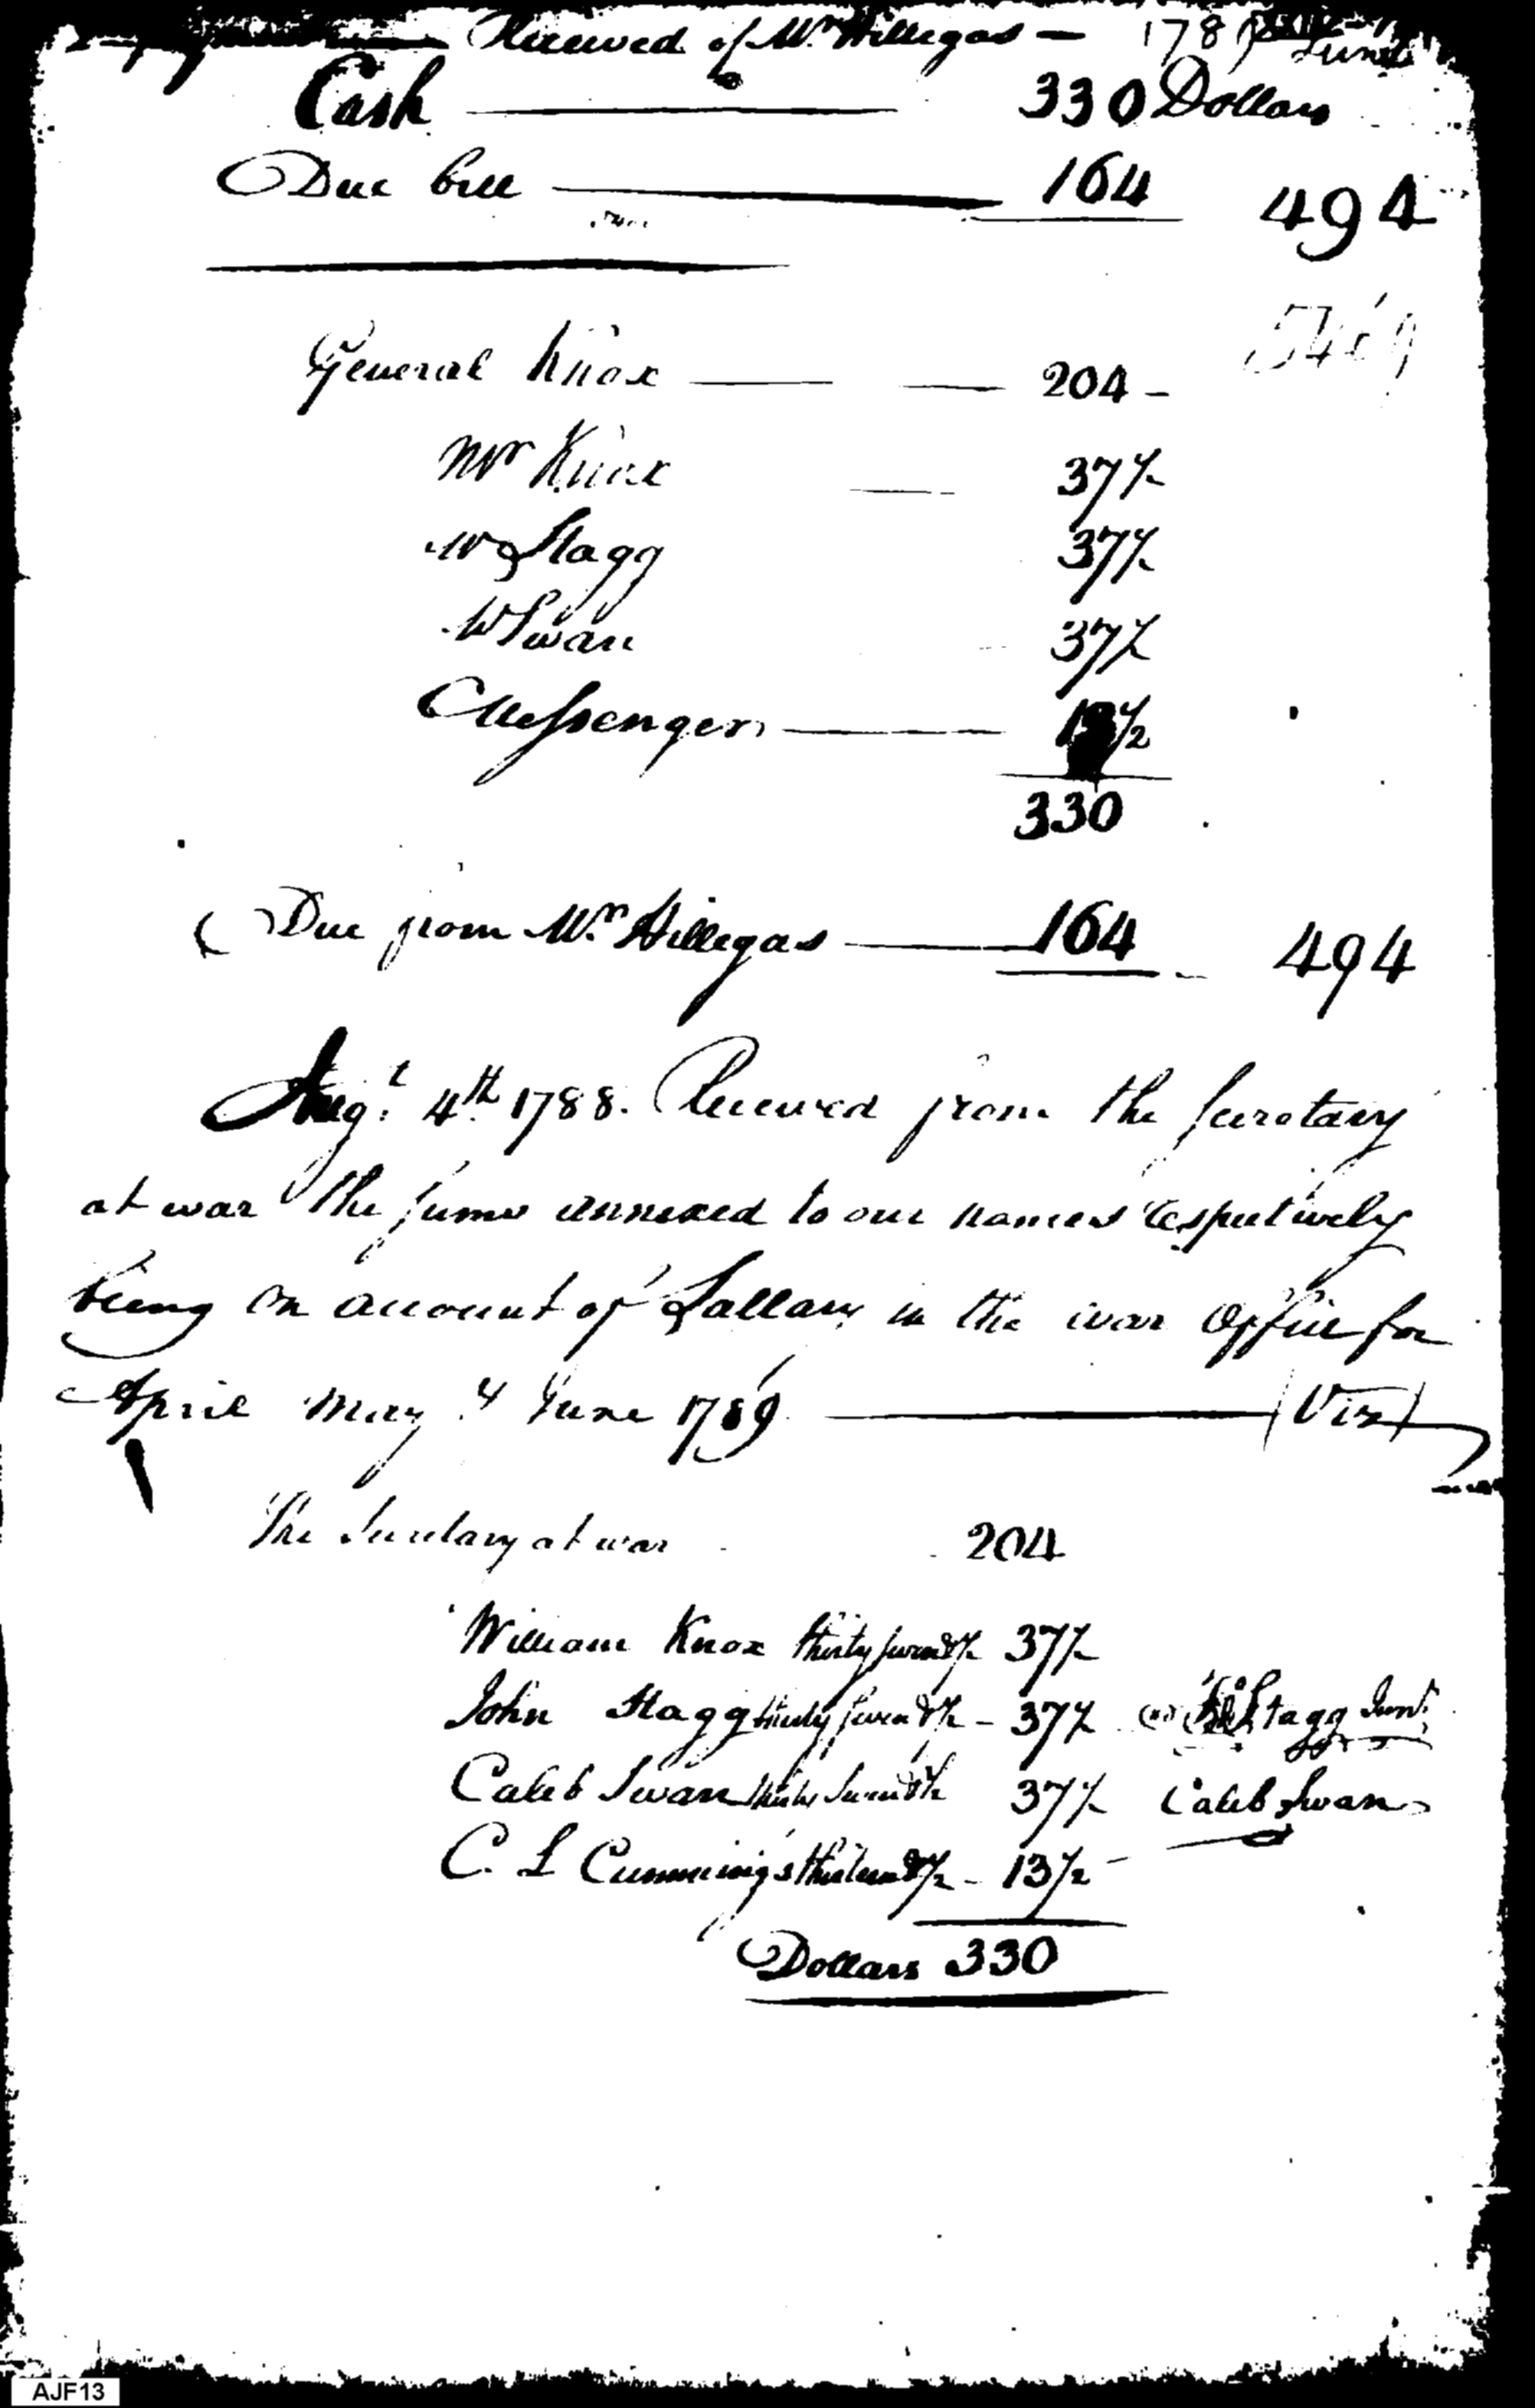 Received of Mr. Hillegas — 178
Cash — 330 Dollars
Due bill — 164 494
General Knox — 204 -
Mr Knox — 37½
Mr Stagg 37½
Mr Swan 37½
Messenger — 13½
330
Due from Mr. Hillegas — 164 494
Augt. 4th 1788. Received from the Secretary
at war the sums annexed to our names respectively
being on account of Sallary in the war office for
April May & June 1789 — (Viz)
The Secretary at war 204
William Knox thirty seven & ½ 37½
John Stagg thirty seven & ½ - 37½ Stagg Junr.
Caleb Swan thirty seven & ½ 37½ Caleb Swan
C. L Cummings thirteen & ½ - 13½ -
Dollars 330
AJF13